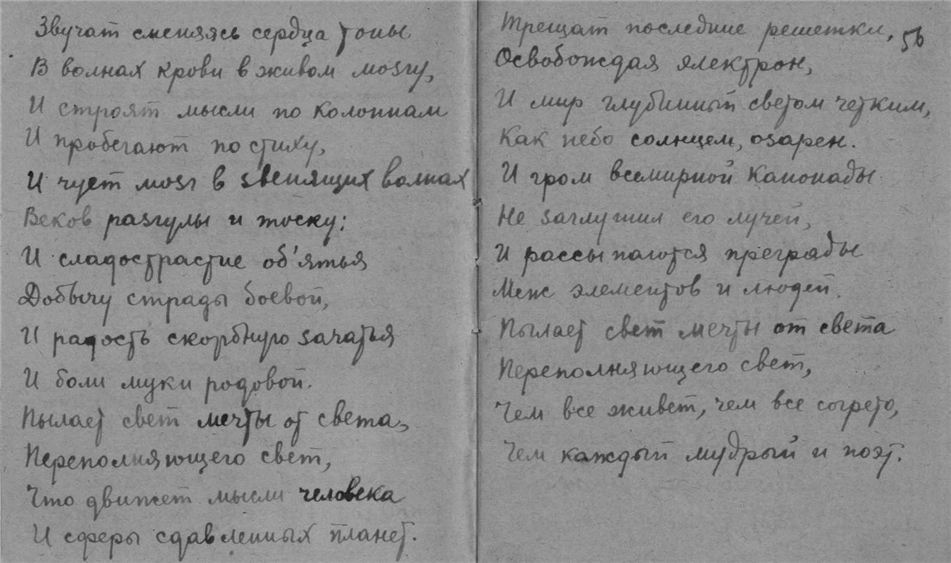 Звучат сменяясь сердца тоны
В волнах крови в живом мозгу,
И строят мысли по колоннам
И пробегают по стиху,
И чует мозг в звенящих волнах
Веков разгулы и тоску:
И сладострастие об'ятья
Добычу страды боевой,
И радость скорбную зачатья
И боли муки родовой.
Пылает свет мечты от света,
Переполняющего свет,
Что движет мысли человека
И сферы сдавленных планет.
56
Трещат последние решетки,
Освобождая электрон,
И мир глубинный светом четким,
Как небо солнцем, озарен.
И гром всемирной канонады
Не заглушил его лучей,
И рассыпаются преграды
Меж элементов и людей.
Пылает свет мечты от света
Переполняющего свет,
Чем все живет, чем все согрето,
Чем каждый мудрый и поэт.